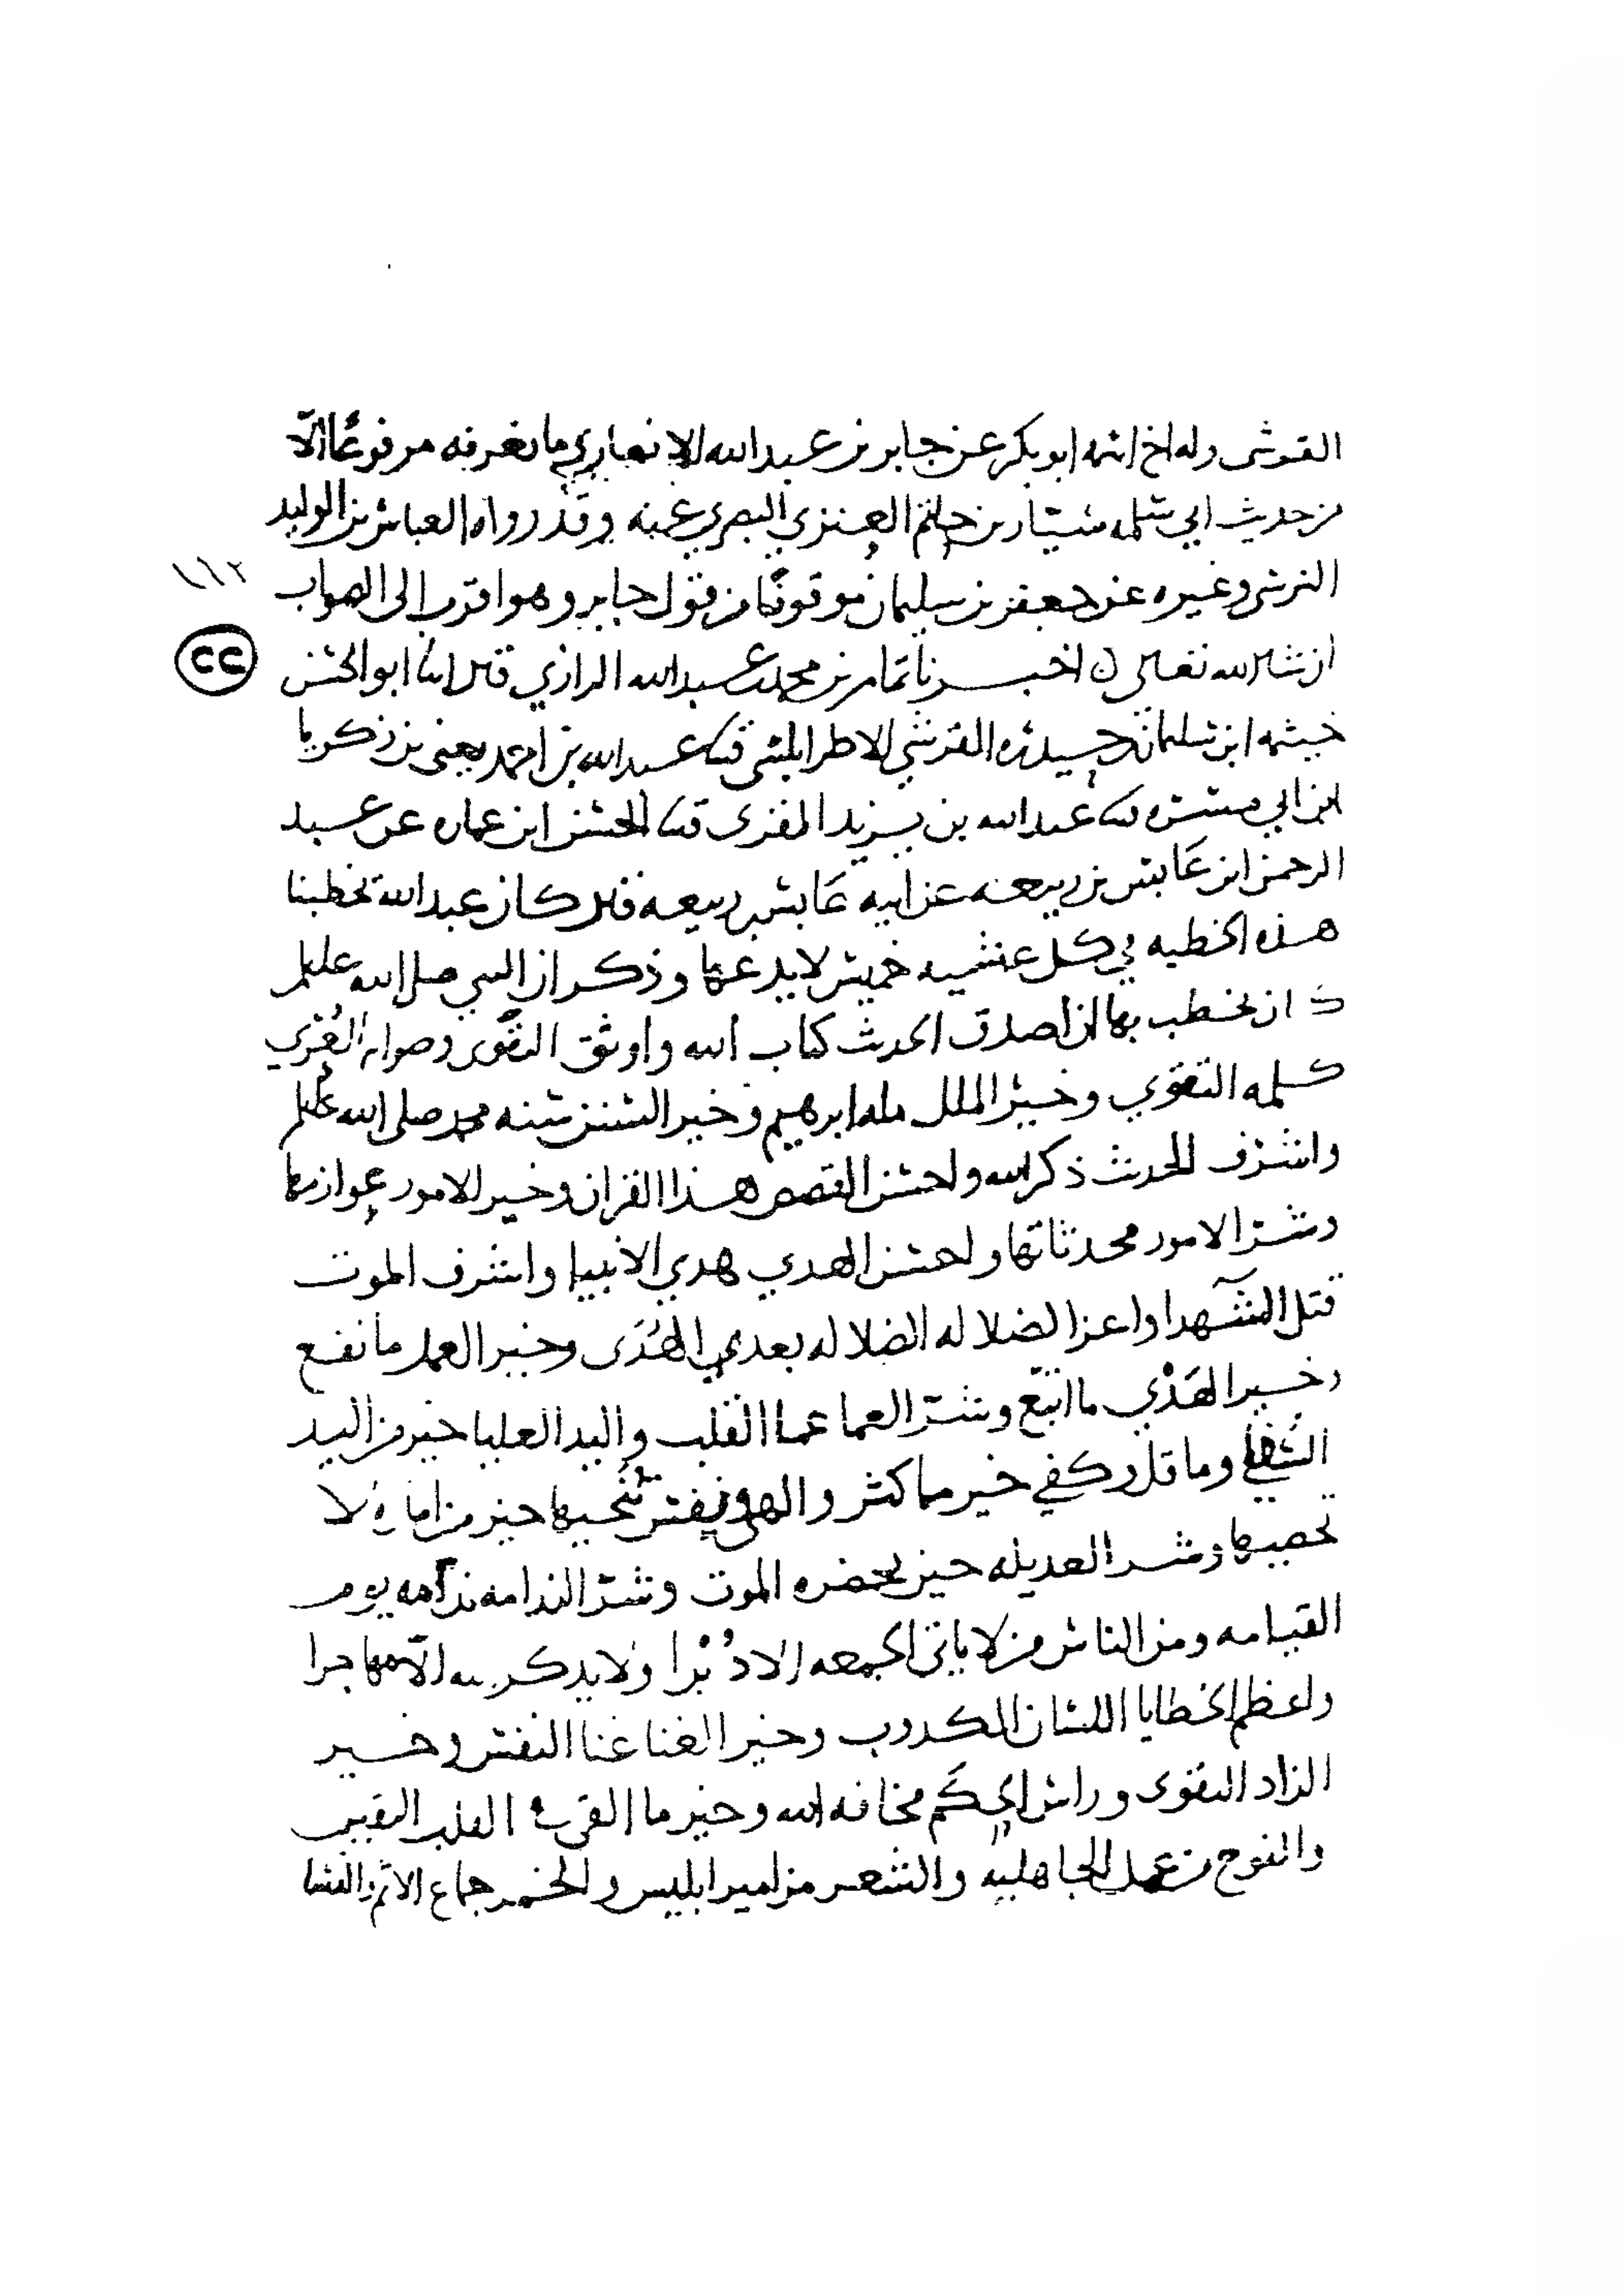 القرشى وله اخ اسمه ابو بكر عن جابر بن عبد الله الانصاري ما نعرفه مرفوعًا الّا
من حديث ابي سلمه سيّار بن حاتم العنزي البصري عنه وقد رواه العباس بن الوليد
النرسى وغيره عن جعفر بن سليمان موقوفًا من قول جابر وهو اقرب الى الصواب
١١٢
ان شا الله تعالى ن اخبرنا تمام بن محمد بن عبد الله الرازي قال انا ابو الحسن
٢٢
خيثمه ابن سليمان بن حيدره القرشي الاطرابلسى قثنا عبد الله بن احمد يعني بن زكريا
ابن ابي مسرّه ثنا عبد الله بن يزيد المقرى قثنا الحسن ابن عماره عن عبد
الرحمن ابن عَابس بن ربيعه عن ابيه عَابس بن ربيعه قال كان عبد الله يخطبنا
هذه الخطبه في كل عشيه خميس لا يدعها وذكر ان النبي صلى الله عليه
كان يخطب بها ان اصدق الحديث كتاب الله واوثق التقوى وصوابه العُرَى
كلمه التقوي وخير الملل مله ابرهيم وخير السنن سنه محمد صلى الله عليه
واشرف الحديث ذكر الله واحسن القصص هذا القران وخير الامور عوازمها
وشرّ الامور محدثاتها واحسن الهدي هدي الانبيا واشرف الموت
قتل الشهدا واعز الضلاله الضلاله بعد الهُدَى وخير العمل ما نفع
وخير الهَدْي ما اتبّع وشرّ العما عما القلب واليد العليا خير من اليد
السُفلى وما قل وكفي خير مما كثر والهى ونفس تنجيها خير من اماره لا
تحصيها وشر العديله حين يحضره الموت وشرّ الندامه ندامه يوم
القيامه ومن الناس من لا ياتى الجمعه الا دُبُرا ولا يذكر الله الّا مهاجرا
واعظم الخطايا اللسان الكدوب وخير الغنا غنا النفس وخير
الزاد التقوى وراس الحِكَم مخافه الله وخير ما القى في القلب اليقين
والنوح من عمل الجاهليه والشعر مزامير ابليس والخمر جماع الاثم والنسا